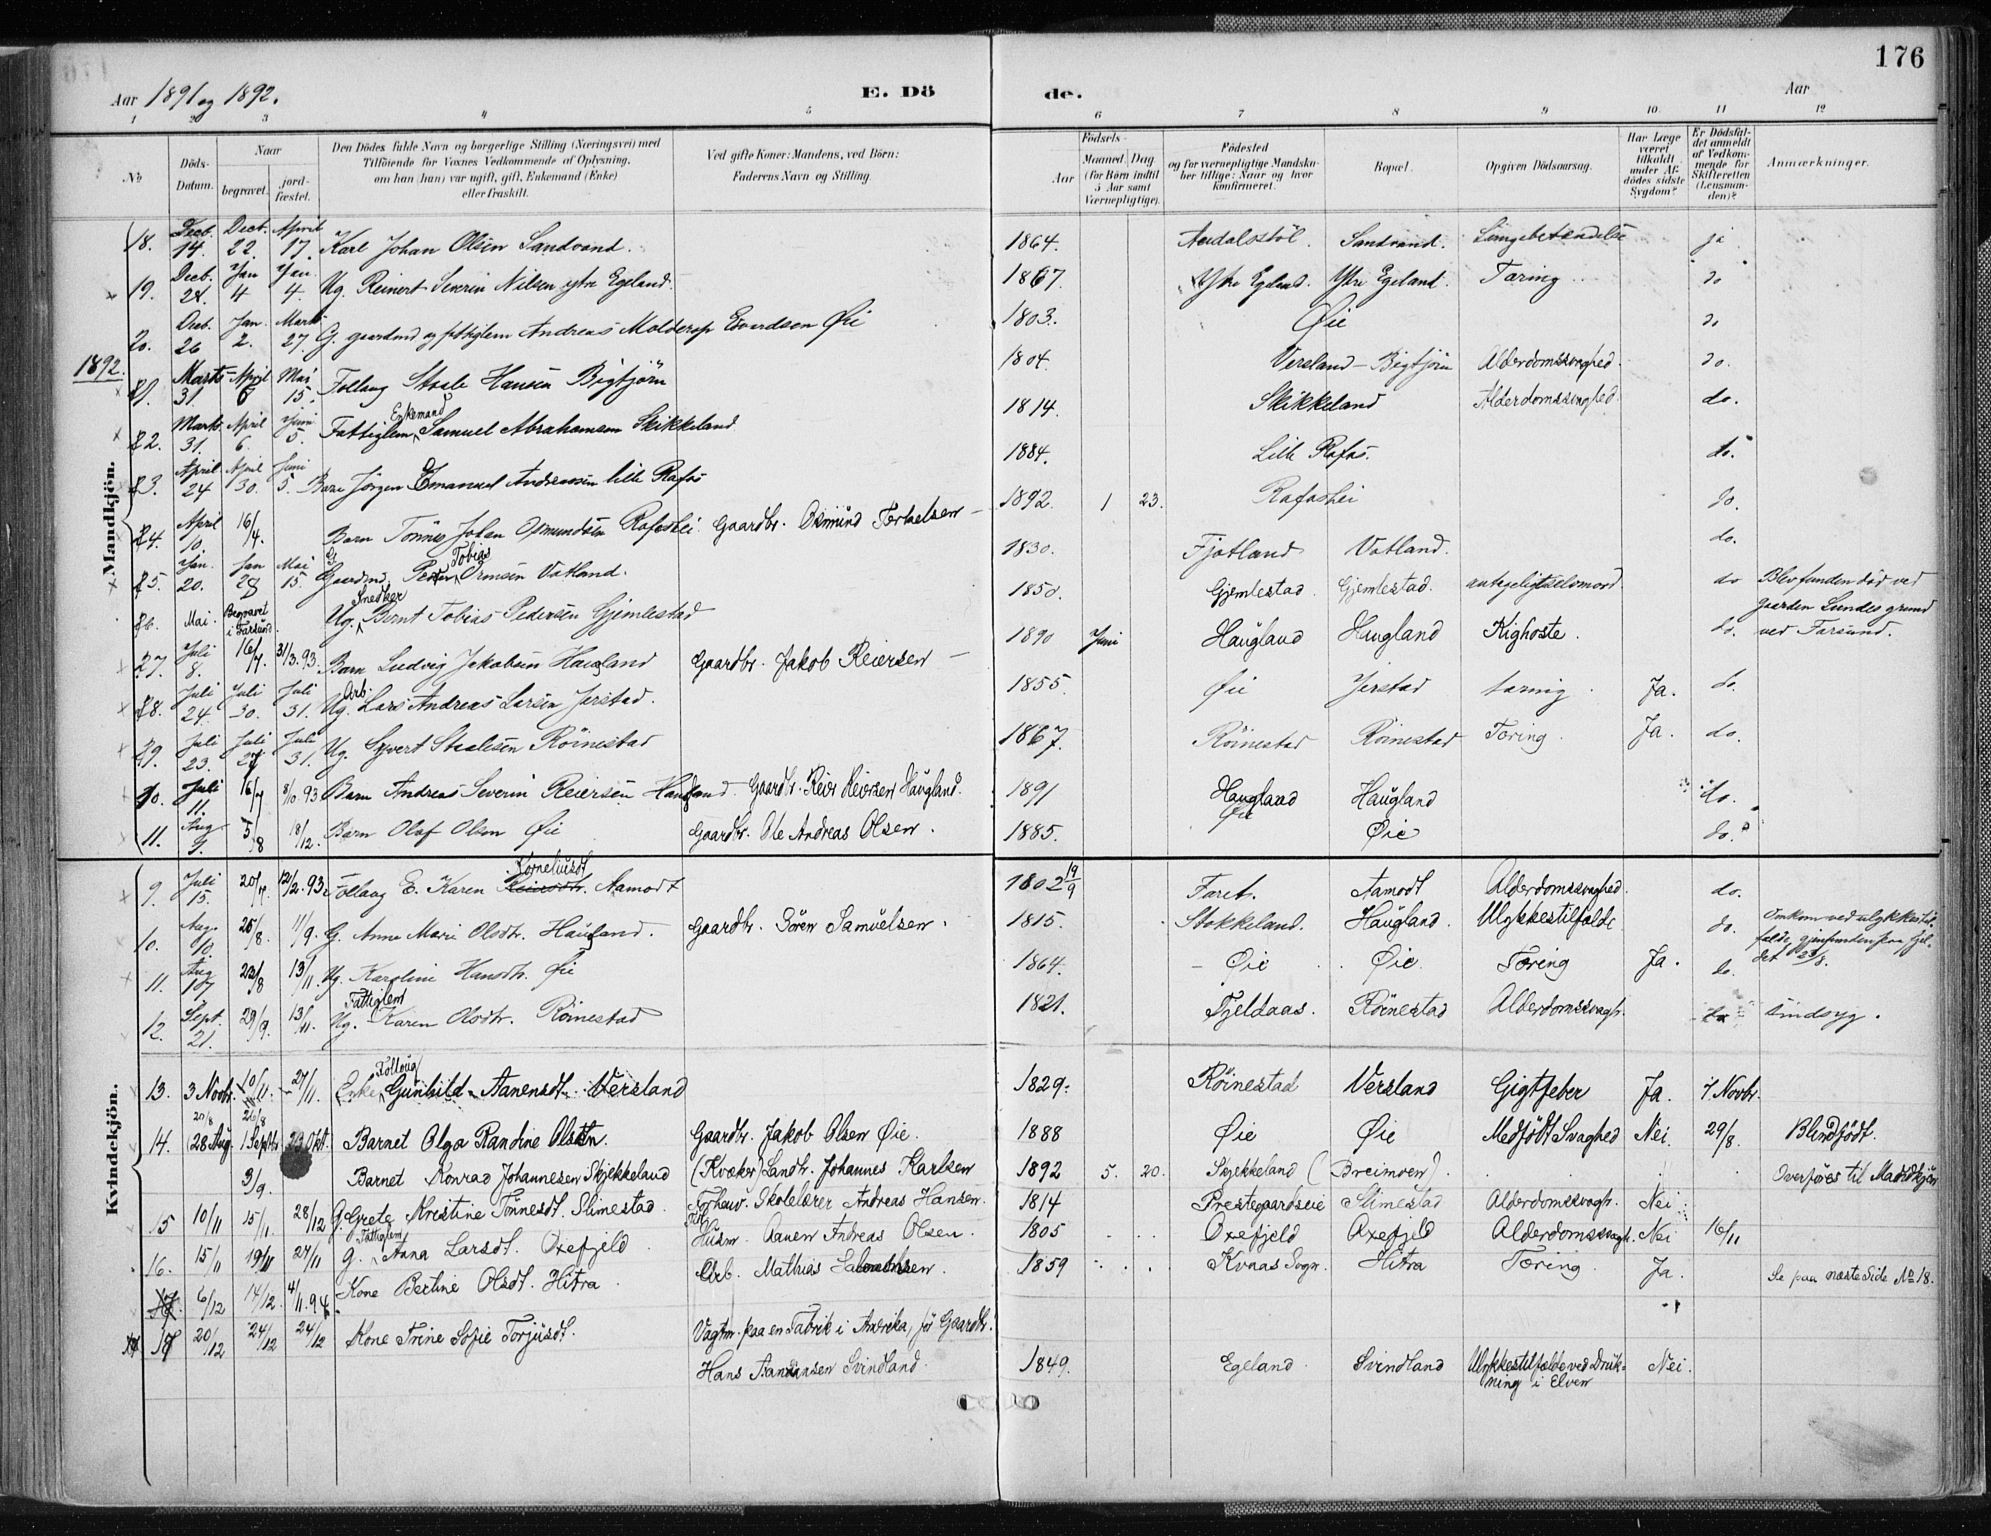 176
Aar 1891 og 1892.
E. Dö
de.
Aar
1 2 3 4 5 6 7 8 9 10. 11 12
No
Döds-Datum.
Naar
begravet.
jord-fæstet.
Den Dödes fulde Navn og borgerlige Stilling (Næringsvei) med
Tilföiende for Voxnes Vedkommende af Oplysning,
om han (hun) var ugift, gift, Enkemand (Enke)
eller fraskilt.
Ved gifte Koner: Mandens, ved Börn:
Faderens Navn og Stilling.
Födsels-
Aar
Maaned. Dag.
(for Børn indtil
5 Aar samt
Værnepligtige).
Födested
og for værnepligtige Mandskaber tillige: Naar og hvor
Konfirmeret.
Bopæl.
Opgiven Dödsaarsag.
Har Læge
været
tilkaldt
under Afdödes sidste
Sygdom?
Er Dödsfaldet anmeldt
af Vedkommende for
Skifteretten
(Lensmanden)?
Anmærkninger.
Mandkjön.
18. Decb. 14. Decb. 22. April 17. Karl Johan Olsen Sandvand. 1864. Sandvand. Lungebetændelse ja
19. Decb. Jan 4 Jan. 4. Ug. Reinert Severin Nilsen ytre Egeland. 1867. Ytre Egeland. Ytre Egeland. Tæring do
20. Decb. 26 Jan. 2. Marts 27. G. gaardmd og fattiglem Andreas Edvardsen Øie 1803. Øie do
1892.
1. Marts 31. April 6 Mai 15. Follaug Staale Hansen Bigtjörn 1804. Versland – Bigtjörn Alderdomssvaghed. do.
2. Marts 31. April 6. Juni 5. Fattiglem Enkemand Samuel Abrahamsen Skikkeland 1814. Skikkeland Alderdomssvaghed do.
3. April 24 April 30. Juni 5. Barn Jörgen Emanuel Andreassen lille Rafos 1884. Lille Rafos. do.
4. April 10. 16/4. Barn Tönnes Johan Osmundsen Rafoshei Gaardbr. Osmund Terkelsen – 1892. 1 23. Rafoshei do.
5. Jan. 20. Jan 28 Mai 15. G. Gaardmd. Peder Tobias Ormsen Vatland. 1830. Fjotland Vatland. do.
6. Mai. Begravet i Farsund. Ug. Snedker Bernt Tobias Pedersen Gjemlestad 1850. Gjemlestad Gjemlestad. antageligt selvmord do Blev funden död ved
gaarden Lundes grund
ved Farsund.
7. Juli 8. 16/7. 31/3.93. Barn Ludvig Jakobsen Haugland Gaardbr. Jakob Reiersen – 1890 Juni Haugland Haugland Kighoste. do.
8. Juli 24. Juli 30. Juli 31. Ug. Arb. Lars Andreas Larsen Jerstad. 1855. Øie Jerstad tæring. Ja. do.
9. Juli 23. Juli Juli 31. Ug. Syvert Staalesen Röinestad 1867. Röinestad Röinestad Tæring. Ja. do.
10. Juli 11. 16/7 8/10.93. Barn Andreas Severin Reiersen Haugland. Gaardbr. Reier Reiersen Haugland. 1891 Haugland Haugland do.
11. Aug. 9. 5/8 18/12. Barn Olaf Olsen Øie Gaardbr. Ole Andreas Olsen. 1885. Øie Øie do.
Kvindekjön.
9. Juli 15. 20/7. 12/2.93. Follaug E. Karen Korneliusdt Aamodt 1802 19/9 Faret. Aamodt Alderdomssvaghed. do.
10. Aug. 10. 25/8. 11/9. G. Anne Mari Olsdtr. Haugland. Gaardbr. Sören Samuelsen. 1815. Stokkeland. Haugland. Ulykkestilfælde do. Omkom ved ulykkestilfælde, gjenfunden paa fjeldet 23/8.
11. Aug 17 22/8 13/11. Ug. Karoline Hansdtr. Øie 1864. – Øie Øie. Tæring Ja. do.
12. Sept. 21. 29/9. 13/11. Ug. Fattiglem Karen Olsdtr. Röinestad 1821. Fjeldaas. Röinestad Alderdomssvagh. Sindsyg.
13. 3 Novbr. 10/11. – 27/11. Enke Follaug Gunhild Aanensdt. Versland 1829. Röinestad Versland Gigtfeber Ja. 7 Novbr.
14. 28 Aug. 20/8 1 Septbr 26/8 23 Okt. Barnet Olga Randine Olsen. Gaardbr. Jakob Olsen Øie. 1888 Øie Øie Medfödt Svaghed Nei. 29/8. Blindfödt.
3/9. Barnet Konrad Johannesen Skjekkeland (Kvæker) Landh. Johannes Karlsen 1892 5. 20. Skjekkeland (Breimoen). Overföres til Mandkjön
15 10/11 15/11 28/12 G. Grete Krestine Tönnesdt. Slimestad. Forhenv. Skolelærer Andreas Hansen. 1814 Prestegaardseie Slimestad Alderdomssvagh. Nei
16. 15/11 19/11 27/11 G. Fattiglem Anna Larsdt. Oxefjeld Husm. Aanen Andreas Olsen. 1805 Oxefjeld Oxefjeld Alderdomssvagh. Nei 16/11
17. 6/12 14/12. 4/11.94. Kone Bertine Olsdt. Hitra. Arb. Mathias Salomonsen. 1859 Kvaas Sogn. Hitra Tæring Ja. Se paa næste Side No 18.
17 20/12 24/12 24/12 Kone Trine Sofie Torjusdt. Vagtm. paa en Fabrik i Amerika, för Gaardbr.
Hans Svindland. 1849. Egeland Svindland Ulykkestilfælde ved Drukning i Elven Nei.